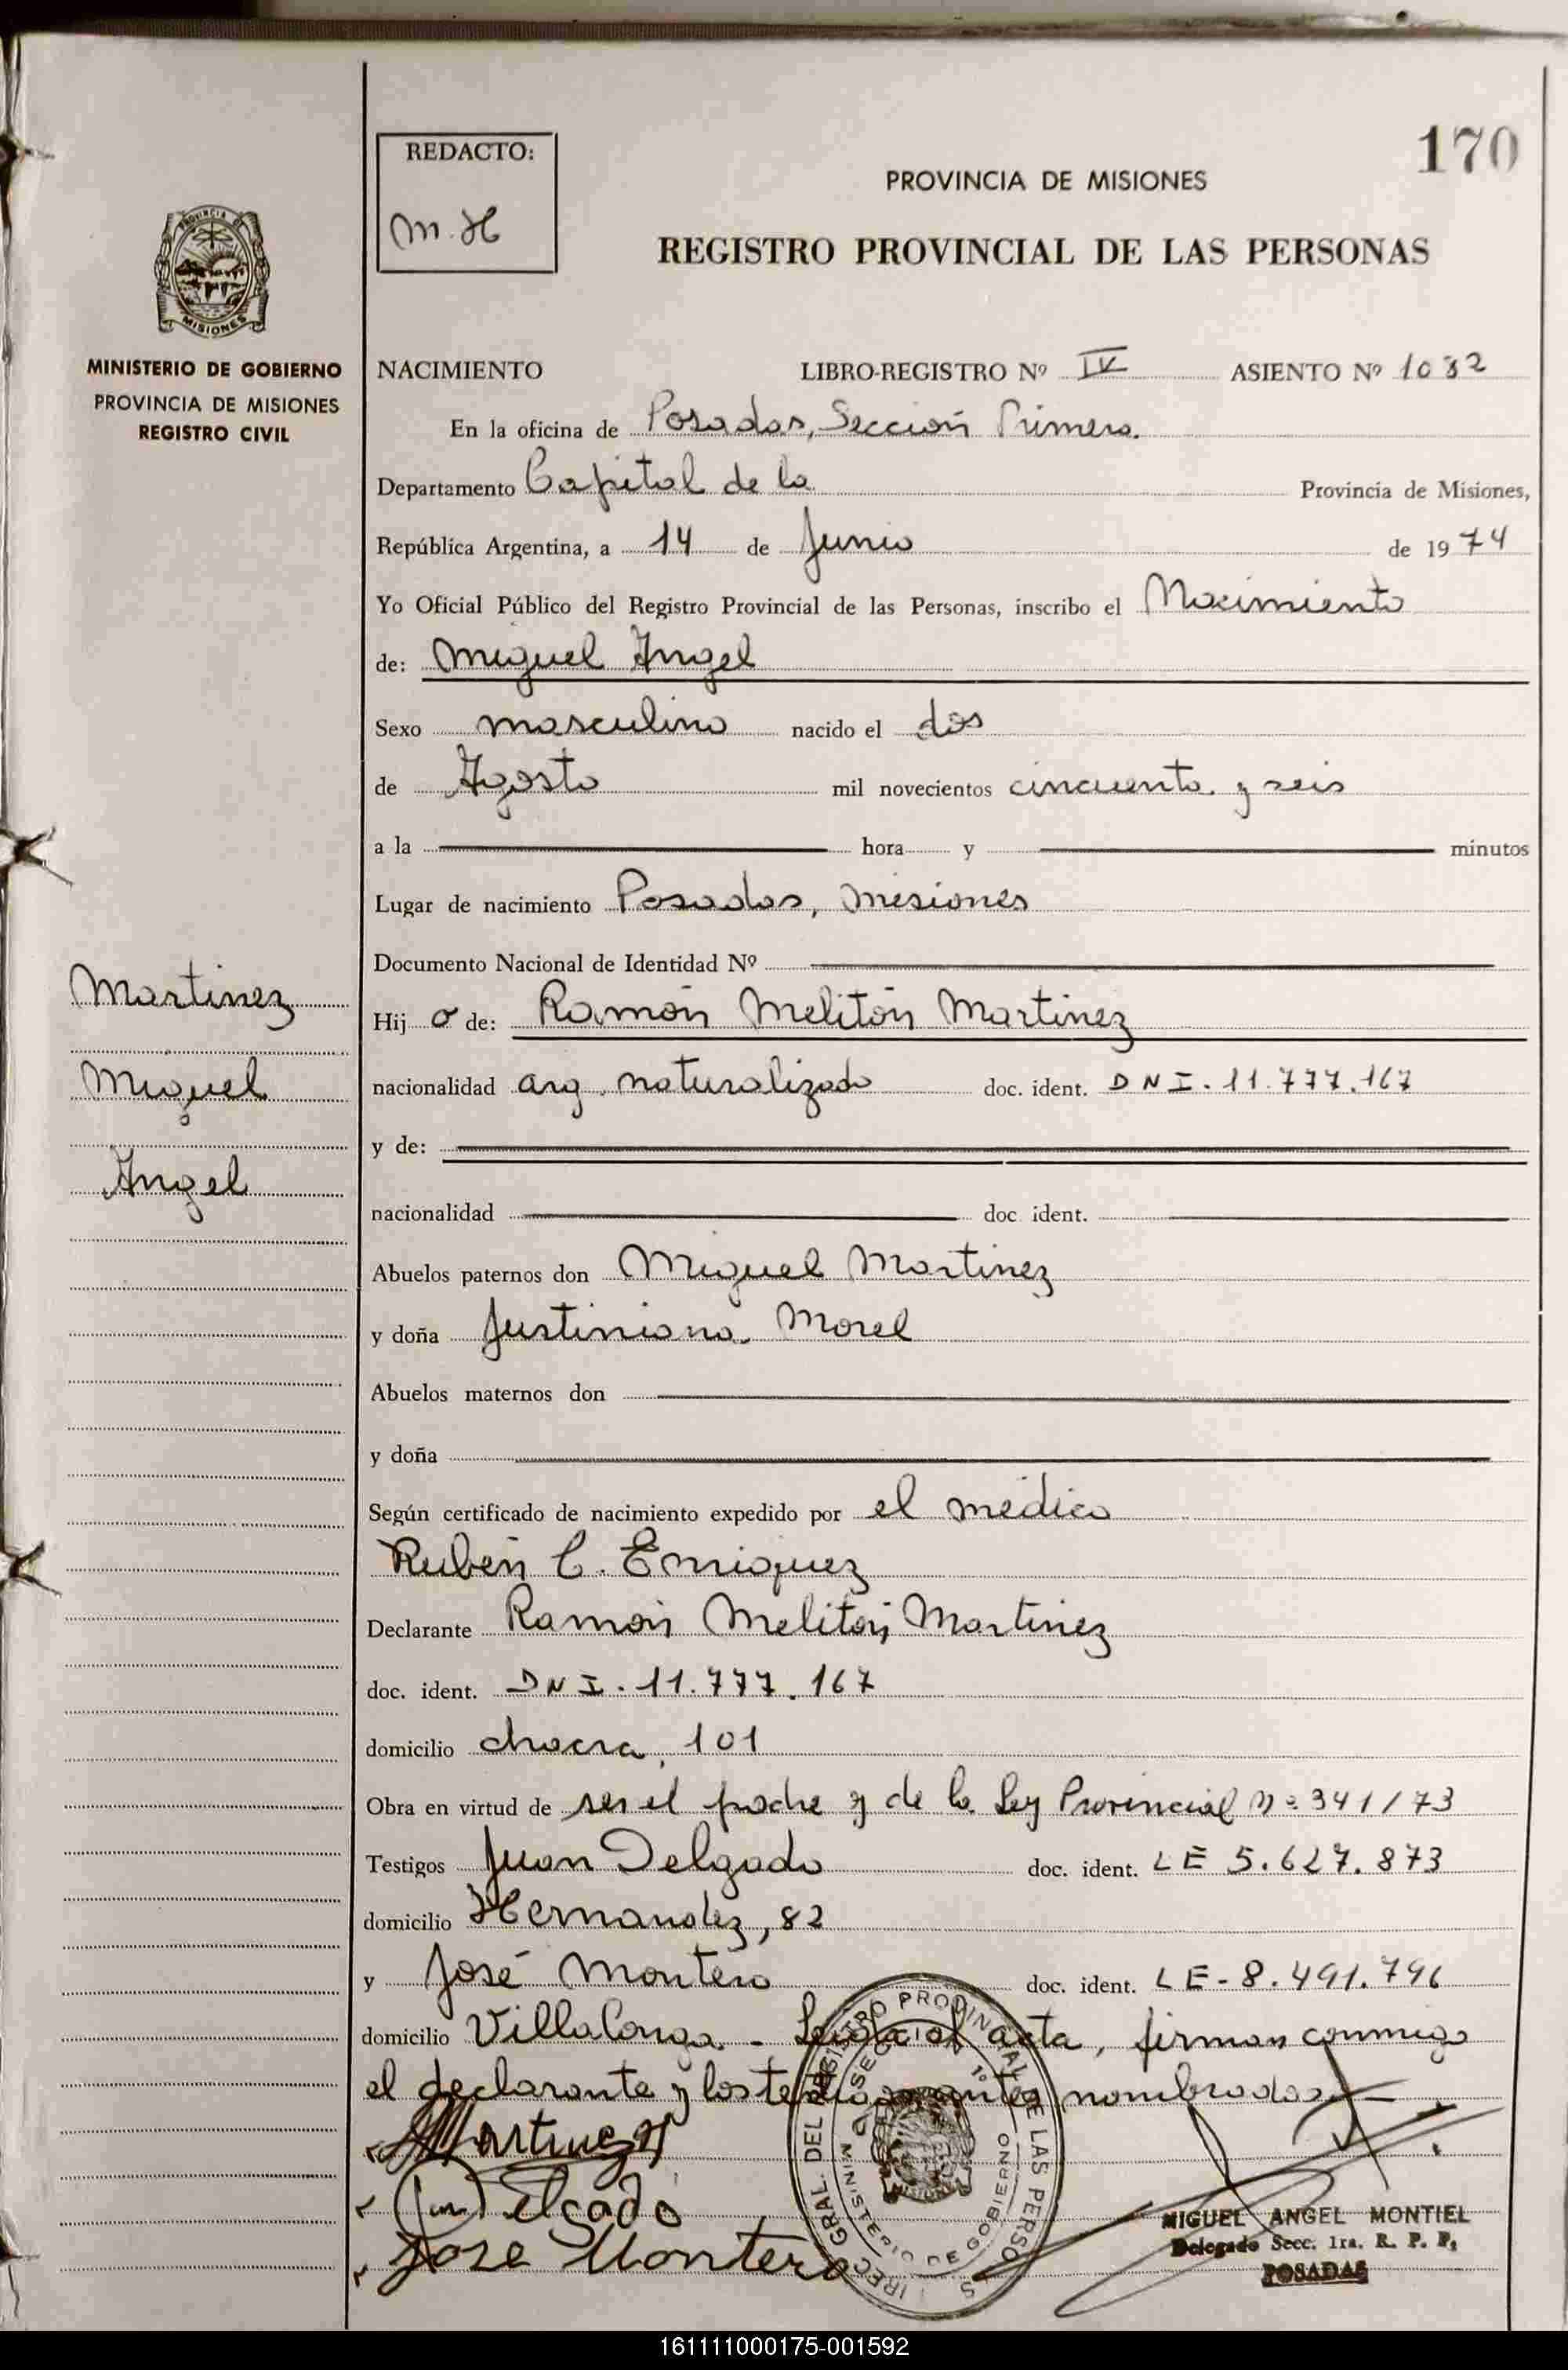 170
REDACTO:
M. H
PROVINCIA DE MISIONES
REGISTRO PROVINCIAL DE LAS PERSONAS
PROVINCIA DE
MISIONES
MINISTERIO DE GOBIERNO
PROVINCIA DE MISIONES
REGISTRO CIVIL
NACIMIENTO LIBRO-REGISTRO Nº IV ASIENTO Nº 1032
En la oficina de Posadas, Sección Primera.
Departamento Capital de la Provincia de Misiones,
República Argentina, a 14 de Junio de 1974
Yo Oficial Público del Registro Provincial de las Personas, inscribo el Nacimiento
de: Miguel Angel
Sexo masculino nacido el dos
de Agosto mil novecientos cincuenta y seis
a la hora y minutos
Lugar de nacimiento Posadas, Misiones
Documento Nacional de Identidad Nº
Martinez
Miguel
Angel
Hijo de: Ramón Melitón Martinez
nacionalidad arg. naturalizado doc. ident. DNI. 11.777.167
y de:
nacionalidad doc. ident.
Abuelos paternos don Miguel Martinez
y doña Justiniana Morel
Abuelos maternos don
y doña
Según certificado de nacimiento expedido por el médico
Rubén C. Enriquez
Declarante Ramón Melitón Martinez
doc. ident. DNI. 11.777.167
domicilio chacra 101
Obra en virtud de ser el padre y de la Ley Provincial Nº 341/73
Testigos Juan Delgado doc. ident. LE 5.627.873
domicilio Hernandez, 82
y José Montero doc. ident. LE-8.491.796
domicilio Villalonga - Leida el acta, firman conmigo
el declarante y los testigos antes nombrados
Martinez
Juan Delgado
Jose Montero
DIREC. GRAL. DEL REGISTRO PROVINCIAL DE LAS PERSONAS
MINISTERIO DE GOBIERNO
MIGUEL ANGEL MONTIEL
Delegado Secc. 1ra. R. P. P.
POSADAS
161111000175-001592